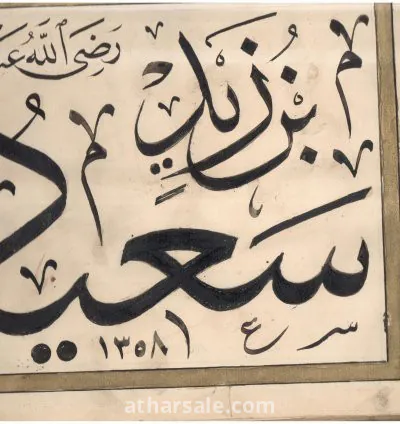 بن زيد رضى الله عنه
سعيد
١٣٥٨
atharsale.com